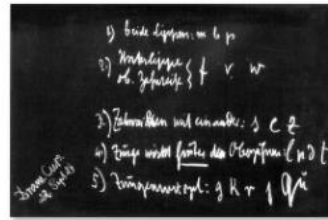 1) beide Lippen: m b p
2) Unterlippe
ob. Zahnreihe { f v w
3) Zahnreihen aufeinander: s c z
4) Zunge hinter den Oberzähnen: l n d t
5) Zungenwurzel: g k r j Qu
Dram. Curs